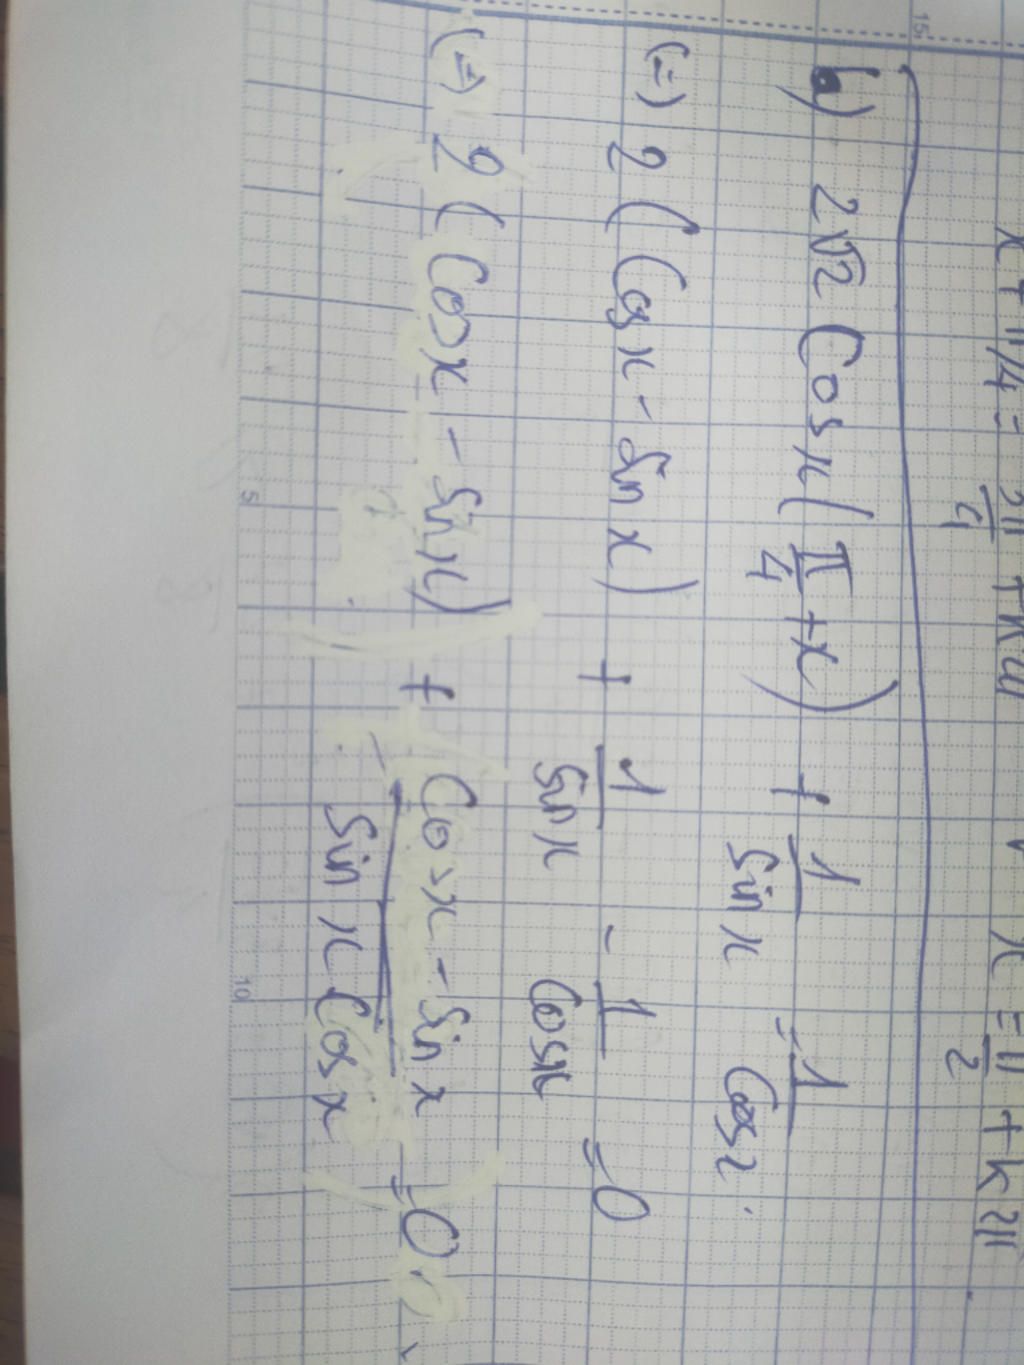 x + π/4 = 3π/4 + k2π v x = π/2 + k2π
b) 2√2 Cos x(π/4 + x) + 1/Sin x = 1/Cos x
(=) 2 (Cos x - Sin x) + 1/Sin x - 1/Cos x = 0
(=) 2 (Cos x - Sin x) + Cos x - Sin x/Sin x Cos x = 0
15
5
10